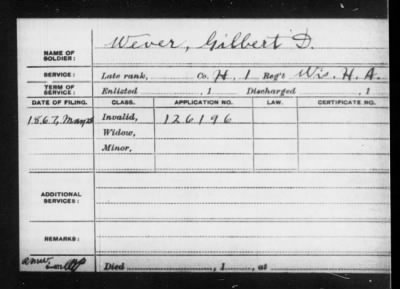 NAME OF SOLDIER: Wever, Gilbert D.
SERVICE: Late rank, Co. H, 1 Reg't Wis. H. A.
TERM OF SERVICE: Enlisted , 1 Discharged , 1
DATE OF FILING. CLASS. APPLICATION NO. LAW. CERTIFICATE NO.
1867, May Invalid, 126196
Widow,
Minor,
ADDITIONAL SERVICES:
REMARKS:
Died , 1 , at